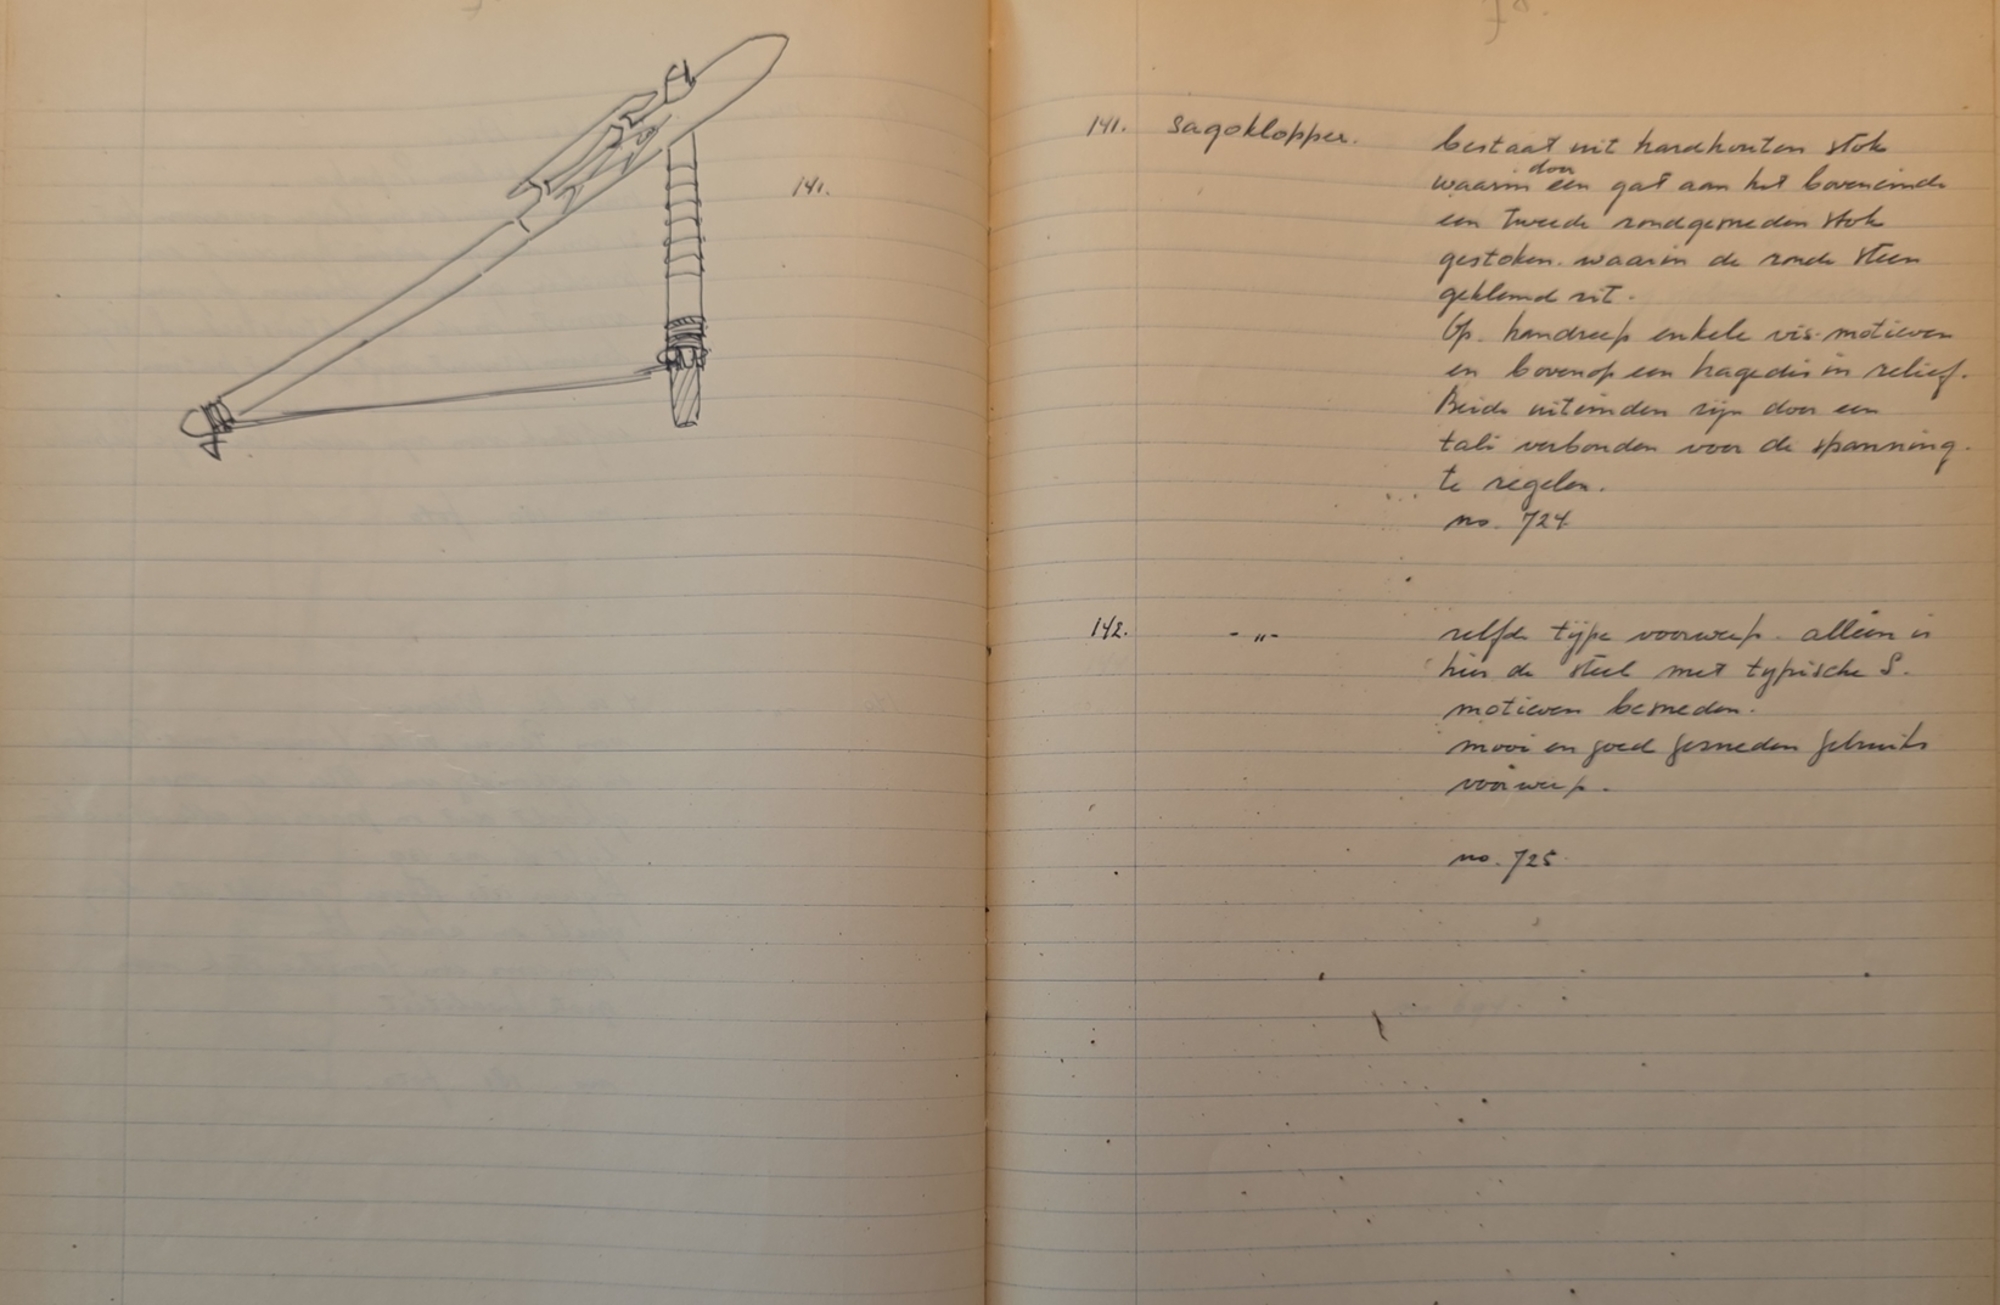 78.
141.
141. sagoklopper. bestaat uit hardhouten stok
door
waarin een gat aan het boveneinde
een tweede rondgesneden stok
gestoken. waarin de ronde steen
geklemd zit.
Op. handreep enkele vis-motieven
en bovenop een hagedis in relief.
Beide uiteinden zijn door een
tali verbonden voor de spanning.
te regelen.
no. 724
142. - " - zelfde type voorwerp. alleen is
hier de steel met typische S.
motieven besneden.
mooi en goed gesneden gebruiks
voorwerp.
no. 725